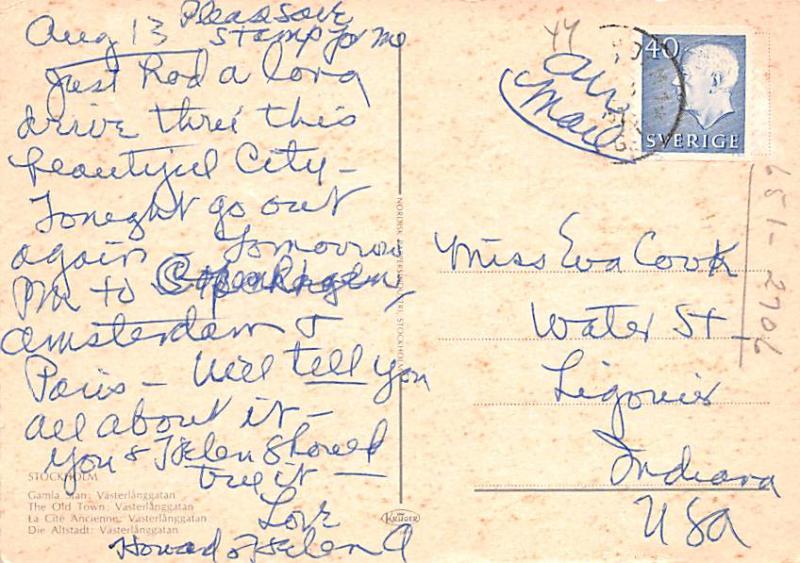 Please save
Aug 13 stamp for me
Just had a long
drive thru this
beautiful City -
Tonight go out
again - Tomorrow
PM to Copenhagen,
Amsterdam &
Paris - Will tell you
all about it -
You & Helen should
try it -
Love
Howard & Helen A
STOCKHOLM
Gamla Stan: Västerlånggatan
The Old Town: Västerlånggatan
La Cité Ancienne: Västerlånggatan
Die Altstadt: Västerlånggatan
KRÜGER
44
air
mail
40
SVERIGE
Miss Eva Cook
Water St
Ligonier
Indiana
USA
651-2706